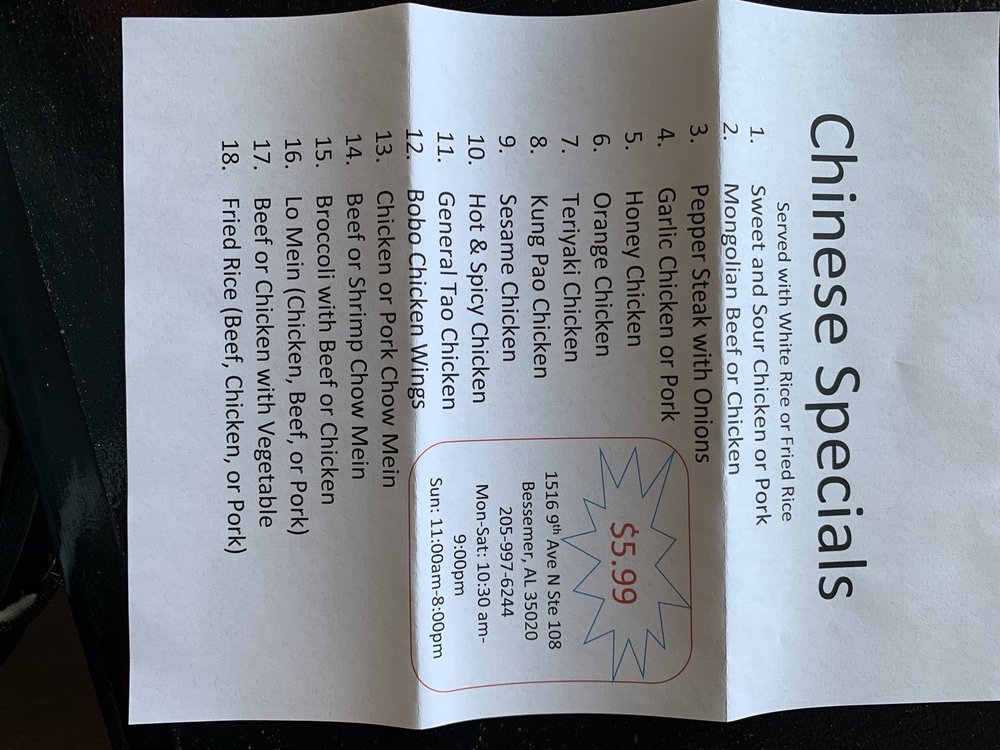 Chinese Specials
Served with White Rice or Fried Rice
1. Sweet and Sour Chicken or Pork
2. Mongolian Beef or Chicken
3. Pepper Steak with Onions
4. Garlic Chicken or Pork
5. Honey Chicken
6. Orange Chicken
7. Teriyaki Chicken
8. Kung Pao Chicken
9. Sesame Chicken
10. Hot & Spicy Chicken
11. General Tao Chicken
12. Bobo Chicken Wings
13. Chicken or Pork Chow Mein
14. Beef or Shrimp Chow Mein
15. Broccoli with Beef or Chicken
16. Lo Mein (Chicken, Beef, or Pork)
17. Beef or Chicken with Vegetable
18. Fried Rice (Beef, Chicken, or Pork)
$5.99
1516 9th Ave N Ste 108
Bessemer, AL 35020
205-997-6244
Mon-Sat: 10:30 am-
9:00pm
Sun: 11:00am-8:00pm